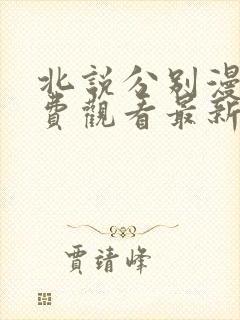 北說分別漫
費觀看最新
賈靖峰